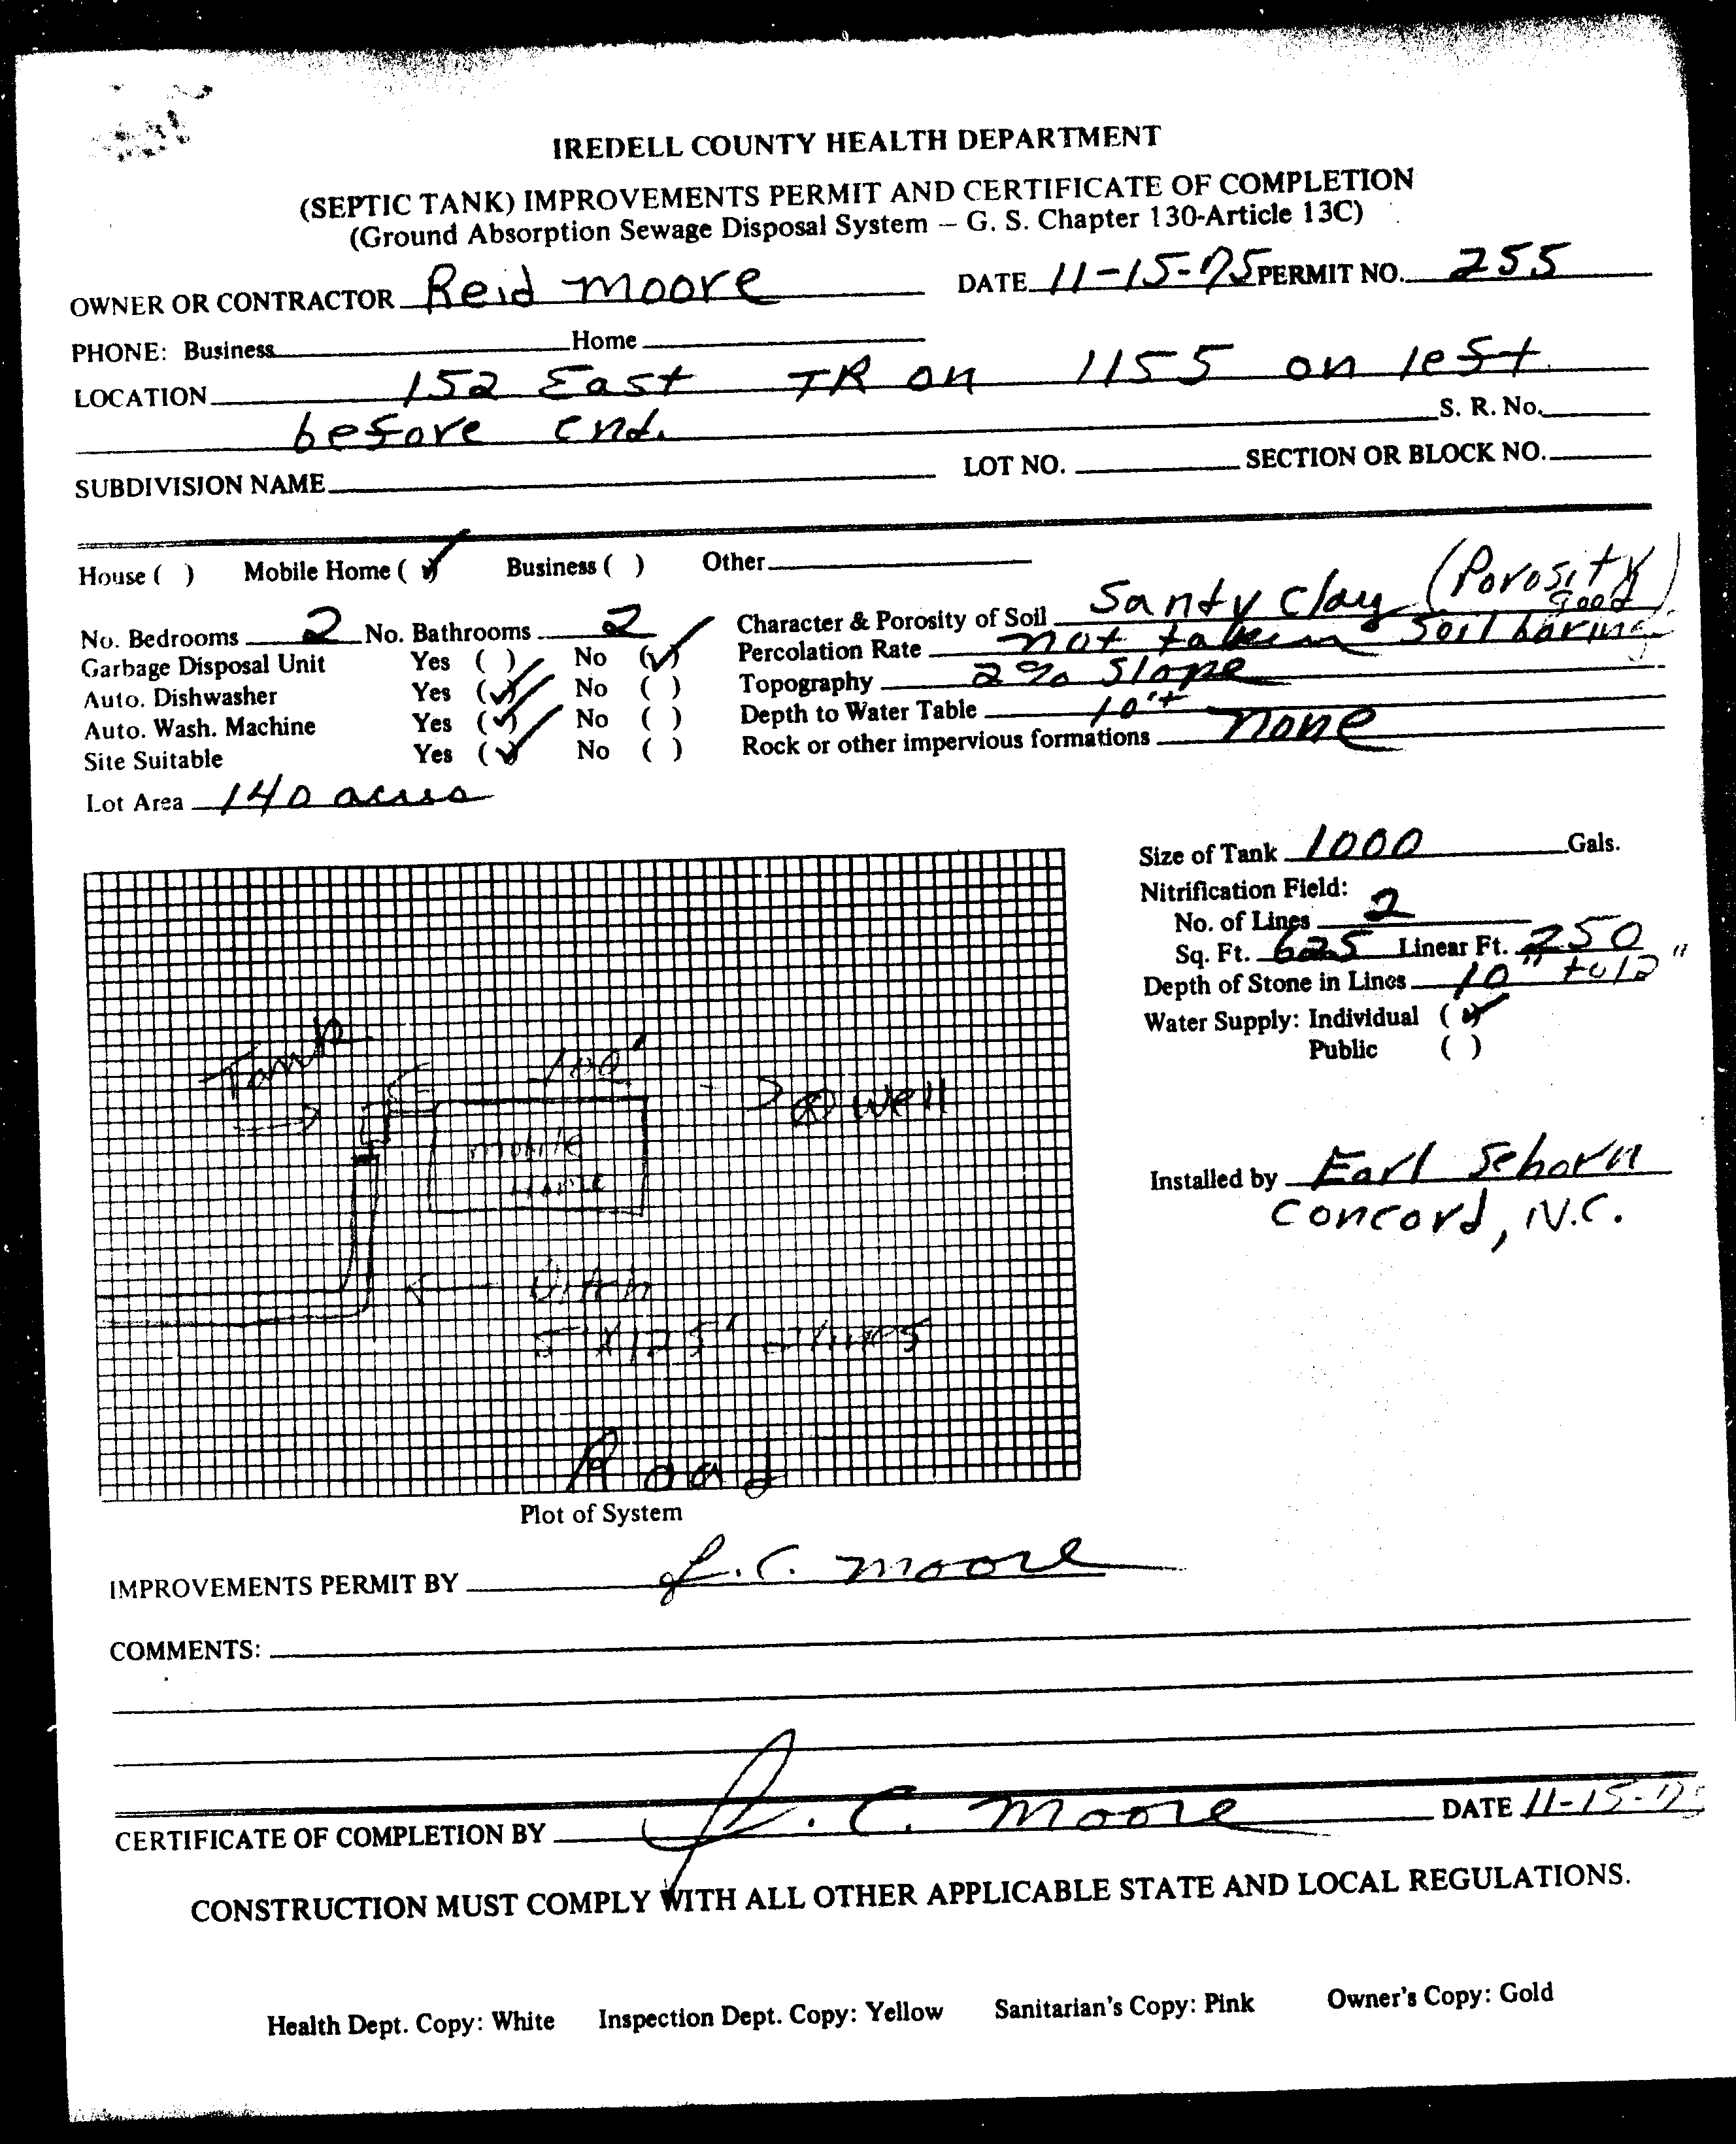 IREDELL COUNTY HEALTH DEPARTMENT
(SEPTIC TANK) IMPROVEMENTS PERMIT AND CERTIFICATE OF COMPLETION
(Ground Absorption Sewage Disposal System – G. S. Chapter 130-Article 13C)
OWNER OR CONTRACTOR Reid Moore DATE 11-15-75 PERMIT NO. 255
PHONE: Business Home
LOCATION 152 East TR on 1155 on left
before end. S. R. No.
SUBDIVISION NAME LOT NO. SECTION OR BLOCK NO.
House ( ) Mobile Home (✓) Business ( ) Other
No. Bedrooms 2 No. Bathrooms 2 Character & Porosity of Soil Sandy Clay (Porosity Good)
Garbage Disposal Unit Yes ( ) No (✓) Percolation Rate not taken Soil boring
Auto. Dishwasher Yes (✓) No ( ) Topography 2% Slope
Auto. Wash. Machine Yes (✓) No ( ) Depth to Water Table 10'+
Site Suitable Yes (✓) No ( ) Rock or other impervious formations none
Lot Area 140 acres
Size of Tank 1000 Gals.
Nitrification Field:
No. of Lines 2
Sq. Ft. 625 Linear Ft. 250
Depth of Stone in Lines 10" to 12"
Water Supply: Individual (✓)
Public ( )
Installed by Earl Sehorn
Concord, N.C.
Tank
100'
Well
mobile
Home
Ditch
5' X 125' 2 lines
Road
Plot of System
IMPROVEMENTS PERMIT BY J. C. Moore
COMMENTS:
CERTIFICATE OF COMPLETION BY J. C. Moore DATE 11-15-75
CONSTRUCTION MUST COMPLY WITH ALL OTHER APPLICABLE STATE AND LOCAL REGULATIONS.
Health Dept. Copy: White Inspection Dept. Copy: Yellow Sanitarian's Copy: Pink Owner's Copy: Gold